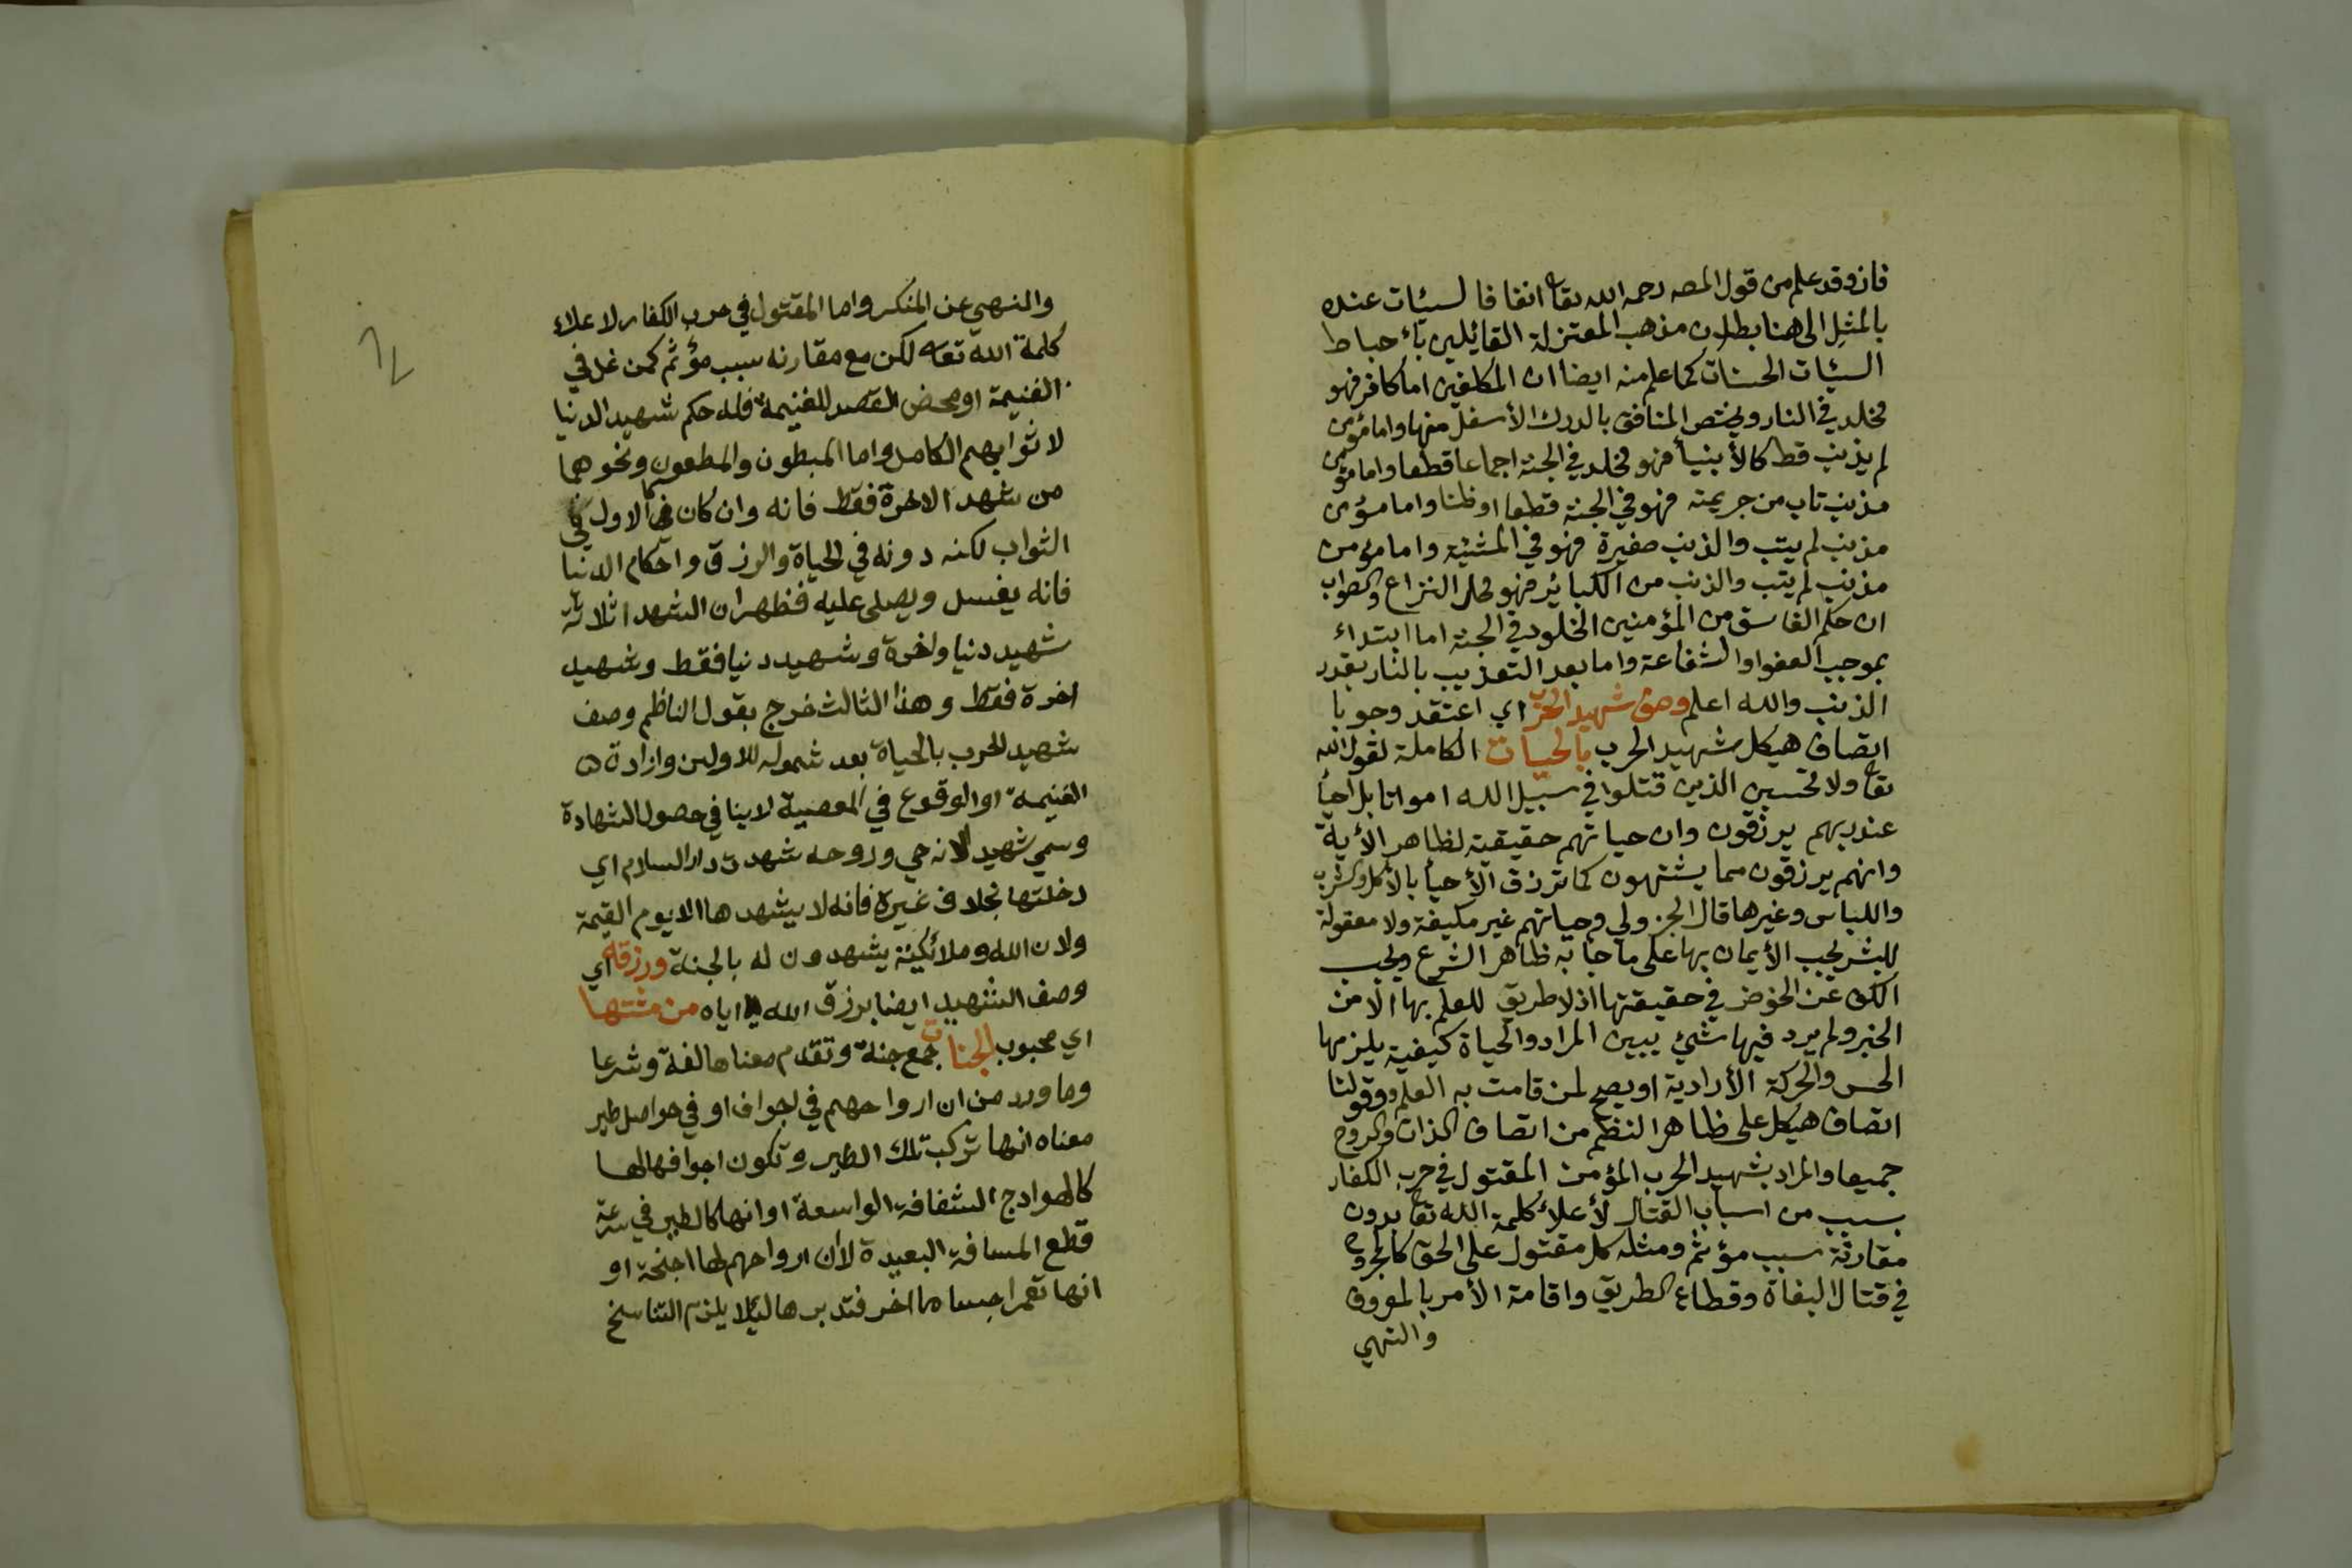 فان وقد علم من قول المصه رحمه الله تعا انفا فالسيئات عنده
بالمثل الى هنا بطلان مذهب المعتزلة القائلين بأحباط
السيئات الحسنات كما علم منه ايضا ان المكلفين اما كافر فهو
مخلد في النار ويختص المنافق بالدرك الأسفل منها واما مؤمن
لم يذنب قط كالأنبيأ فهو مخلد في الجنة اجماعا قطعا واما مؤمن
مذنب تاب من جريمته فهو في الجنة قطعا او ظنا واما مؤمن
مذنب لم يتب والذنب صغيرة فهو في المشيئة واما مؤمن
مذنب لم يتب والذنب من الكبائر فهو محل النزاع والصواب
ان حكم الفاسق من المؤمنين الخلود في الجنة اما ابتداء
بموجب العفو او الشفاعة واما بعد التعذيب بالنار بقدر
الذنب والله اعلم وصف شهيد الحرب اي اعتقد وجوبا
اتصاف هيكل شهيد الحرب بالحيات الكاملة لقول الله
تعا ولا تحسبن الذين قتلوا في سبيل الله امواتا بل احيأ
عند ربهم يرزقون وان حياتهم حقيقية لظاهر الأية
وانهم يرزقون مما يشتهون كما ترزق الأحيأ بالأكل والشرب
واللباس وغيرها قال الجزولي وحياتهم غير مكيفة ولا معقولة
للبشر يجب الأيمان بها على ما جا به ظاهر الشرع ويجب
الكف عن الخوض في حقيقتها اذ لا طريق للعلم بها الا من
الخبر ولم يرد فيها شئ يبين المراد والحياة كيفية يلزمها
الحس والحركة الأرادية او يصح لمن قامت به العلم وقولنا
اتصاف هيكل على ظاهر النظم من اتصاف الذات والروح
جميعا والمراد بشهيد الحرب المؤمن المقتول في حرب الكفار
بسبب من اسباب القتال لأعلاء كلمة الله تعا بدون
مقارنة سبب مؤثم ومثله كل مقتول على الحق كالجروح
في قتال البغاة وقطاع الطريق واقامة الأمر بالمعروف
والنهي
والنهي عن المنكر واما المقتول في حرب الكفار لاعلاء
كلمة الله تعا لكن مع مقارنه سبب مؤثم كمن غل في
الغنيمة او محض القصد للغنيمة فله حكم شهيد الدنيا
لا ثوابهم الكامل واما المبطون والمطعون ونحوهما
من شهدا الاخرة فقط فانه وان كان كالاول في
الثواب لكنه دونه في الحياة والرزق واحكام الدنيا
فانه يغسل ويصلى عليه فظهر ان الشهدا ثلاثة
شهيد دنيا واخرة وشهيد دنيا فقط وشهيد
اخرة فقط وهذا الثالث خرج بقول الناظم وصف
شهيد الحرب بالحياة بعد شموله للاولين وارادة
الغنيمة او الوقوع في المعصية لا ينافي حصول الشهادة
وسمي شهيد الانه حي وروحه شهدت دار السلام اي
دخلتها بخلاف غيره فانه لا يشهدها الا يوم القيمة
ولان الله وملائكته يشهدون له بالجنة ورزقه اي
وصف الشهيد ايضا برزق الله اياه من مشتها
اي محبوب الجنات جمع جنة وتقدم معناها لغة وشرعا
وما ورد من ان ارواحهم في اجواف او في حواصل طير
معناه انها تركب تلك الطير وتكون اجوافها لها
كالهوادج الشفافة الواسعة او انها كالطير في سرعة
قطع المسافة البعيدة لأن ارواحهم لها اجنحة او
انها تعمر اجساما اخر فتدبرها ليلا يلزم التناسخ